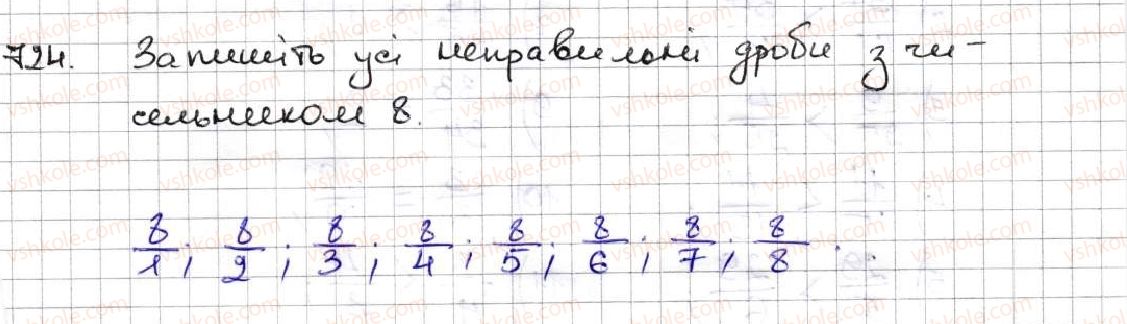 724. Запишіть усі неправильні дроби з чи-
сельником 8.
8/1; 8/2; 8/3; 8/4; 8/5; 8/6; 8/7; 8/8.